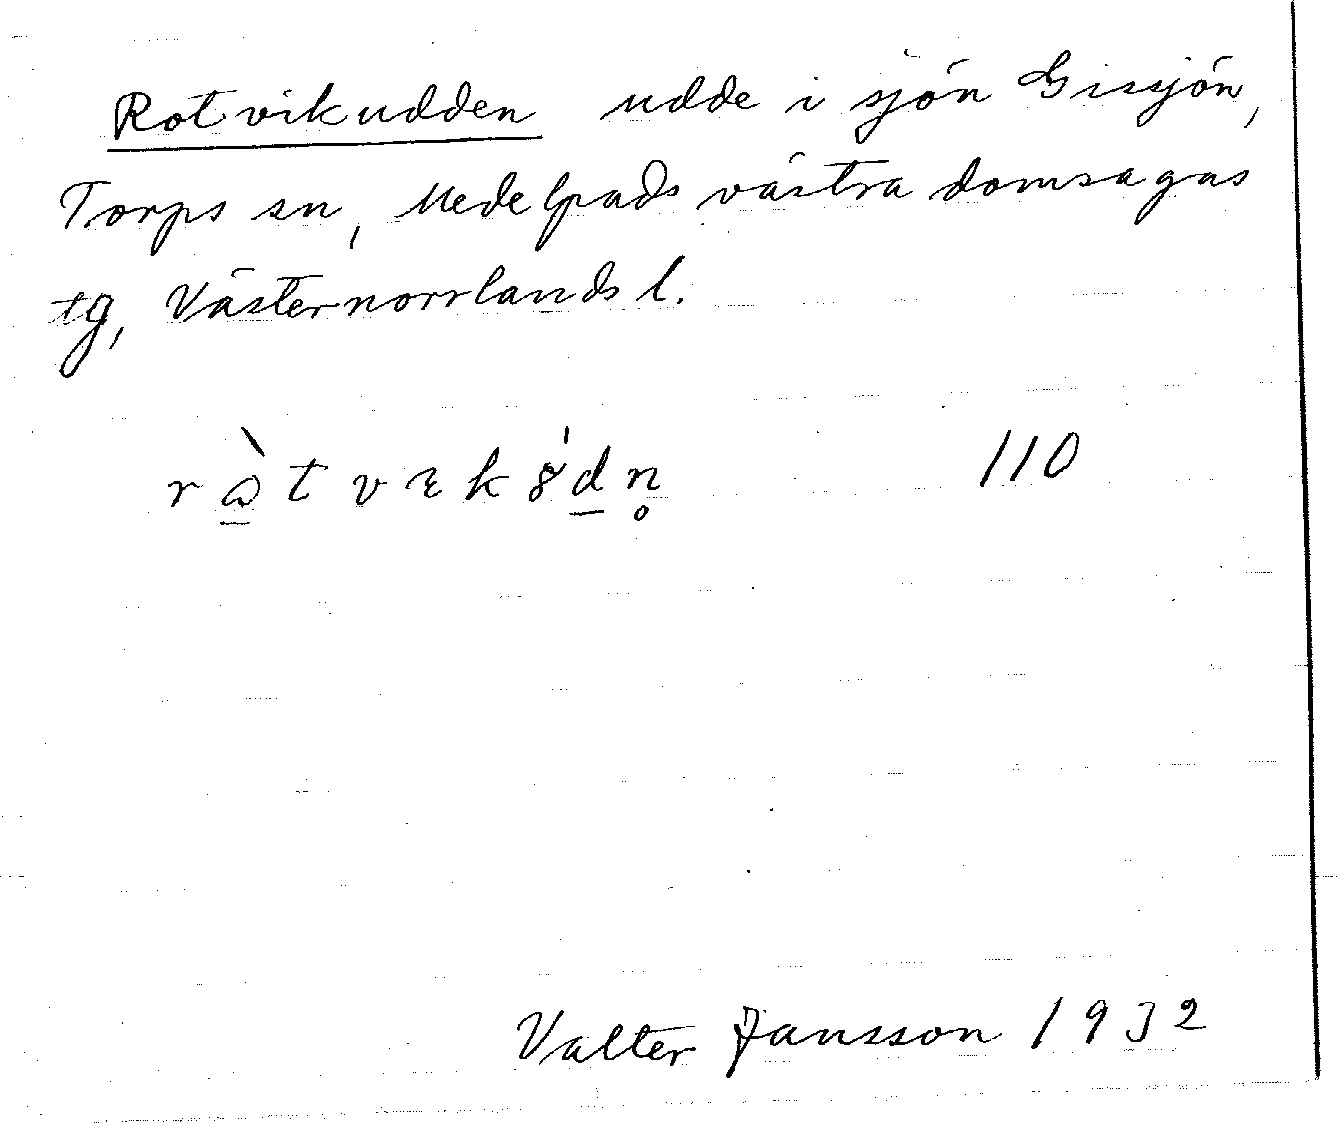 Rotvikudden udde i sjön Gissjön,
Torps sn, Medelpads västra domsagas
tg, Västernorrlands l.
110
Valter Jansson 1932